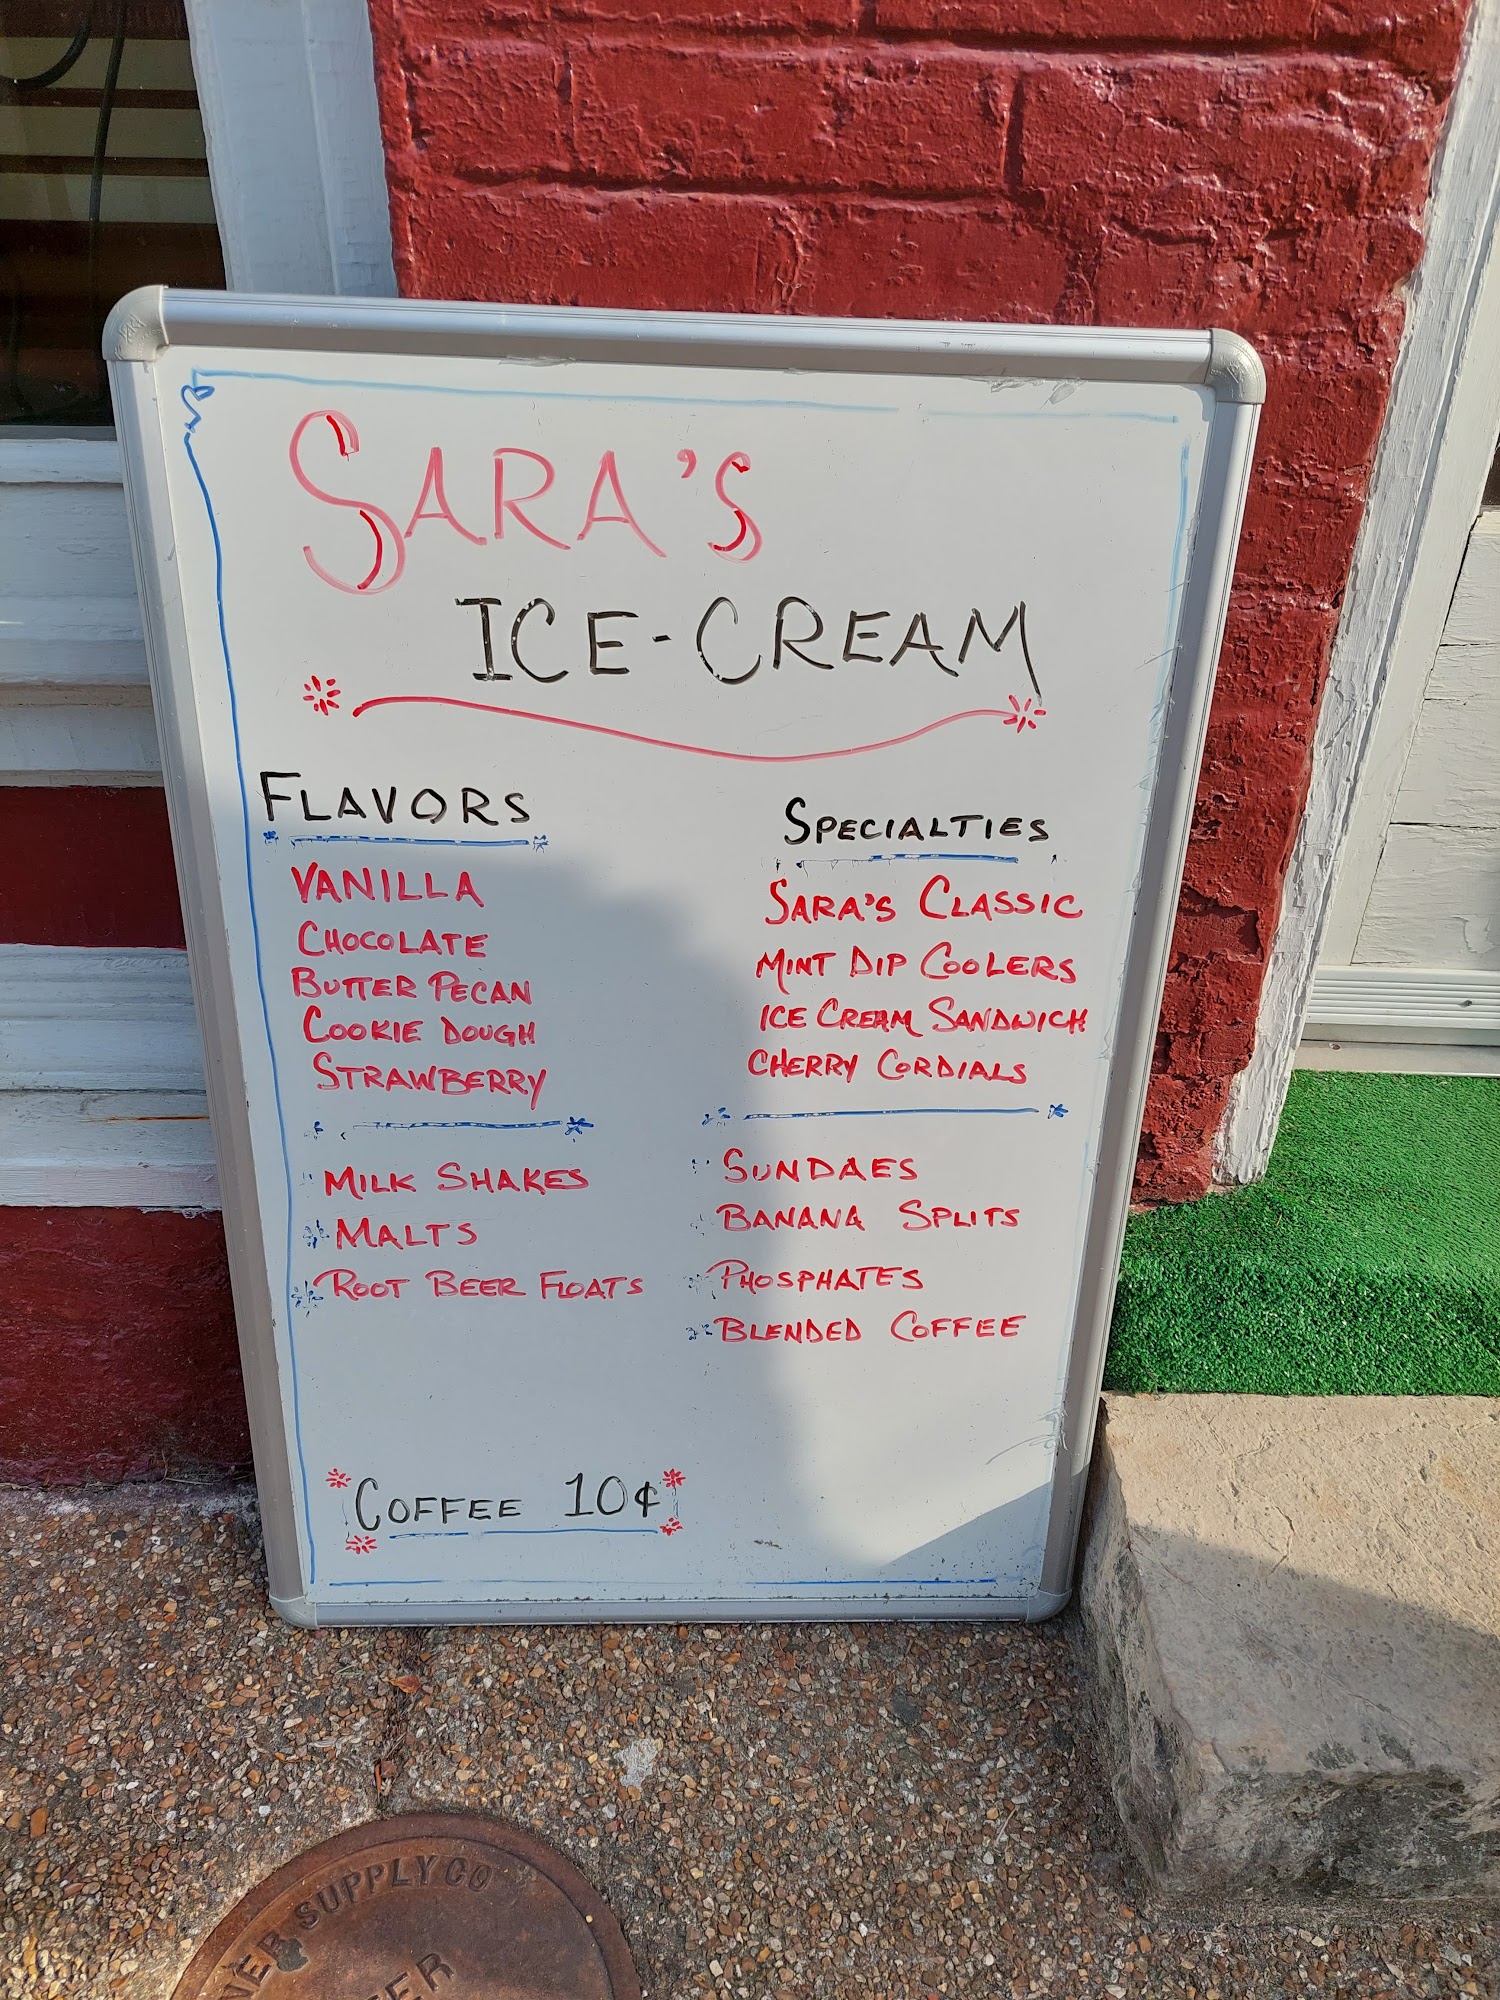 SARA'S
ICE-CREAM
FLAVORS
VANILLA
CHOCOLATE
BUTTER PECAN
COOKIE DOUGH
STRAWBERRY
MILK SHAKES
MALTS
ROOT BEER FLOATS
SPECIALTIES
SARA'S CLASSIC
MINT DIP COOLERS
ICE CREAM SANDWICH
CHERRY CORDIALS
SUNDAES
BANANA SPLITS
PHOSPHATES
BLENDED COFFEE
COFFEE 10¢
SUPPLY CO